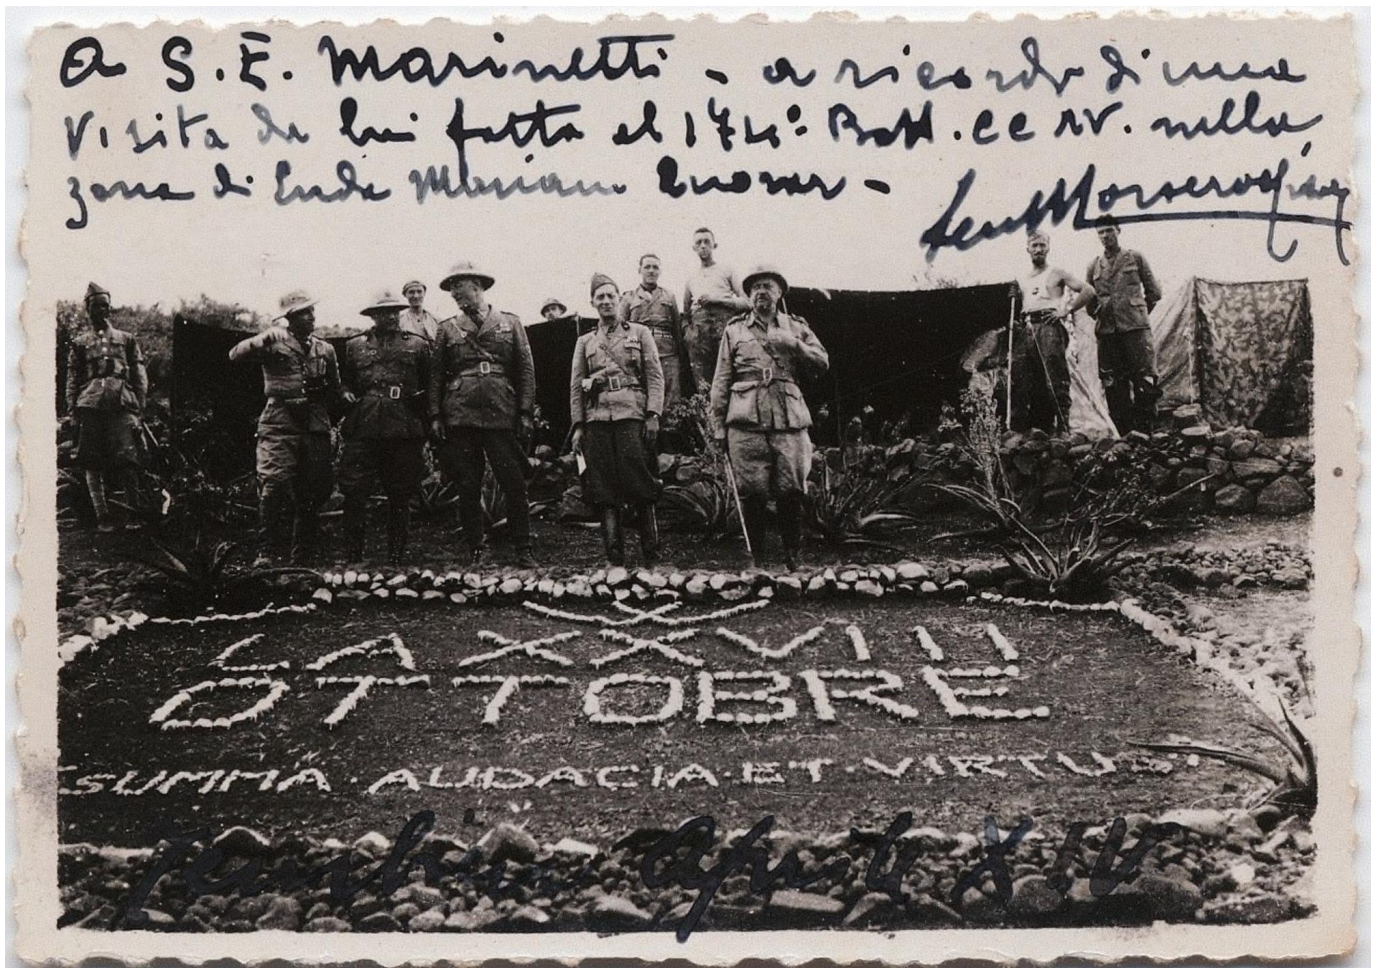 A S.E. Marinetti - a ricordo di una
visita da lui fatta al 174° Batt. CC NN. nella
zona di Enda Mariam Quorar -
LA XXVIII
OTTOBRE
SUMMA · AUDACIA · ET · VIRTUS ·
Aprile XIV